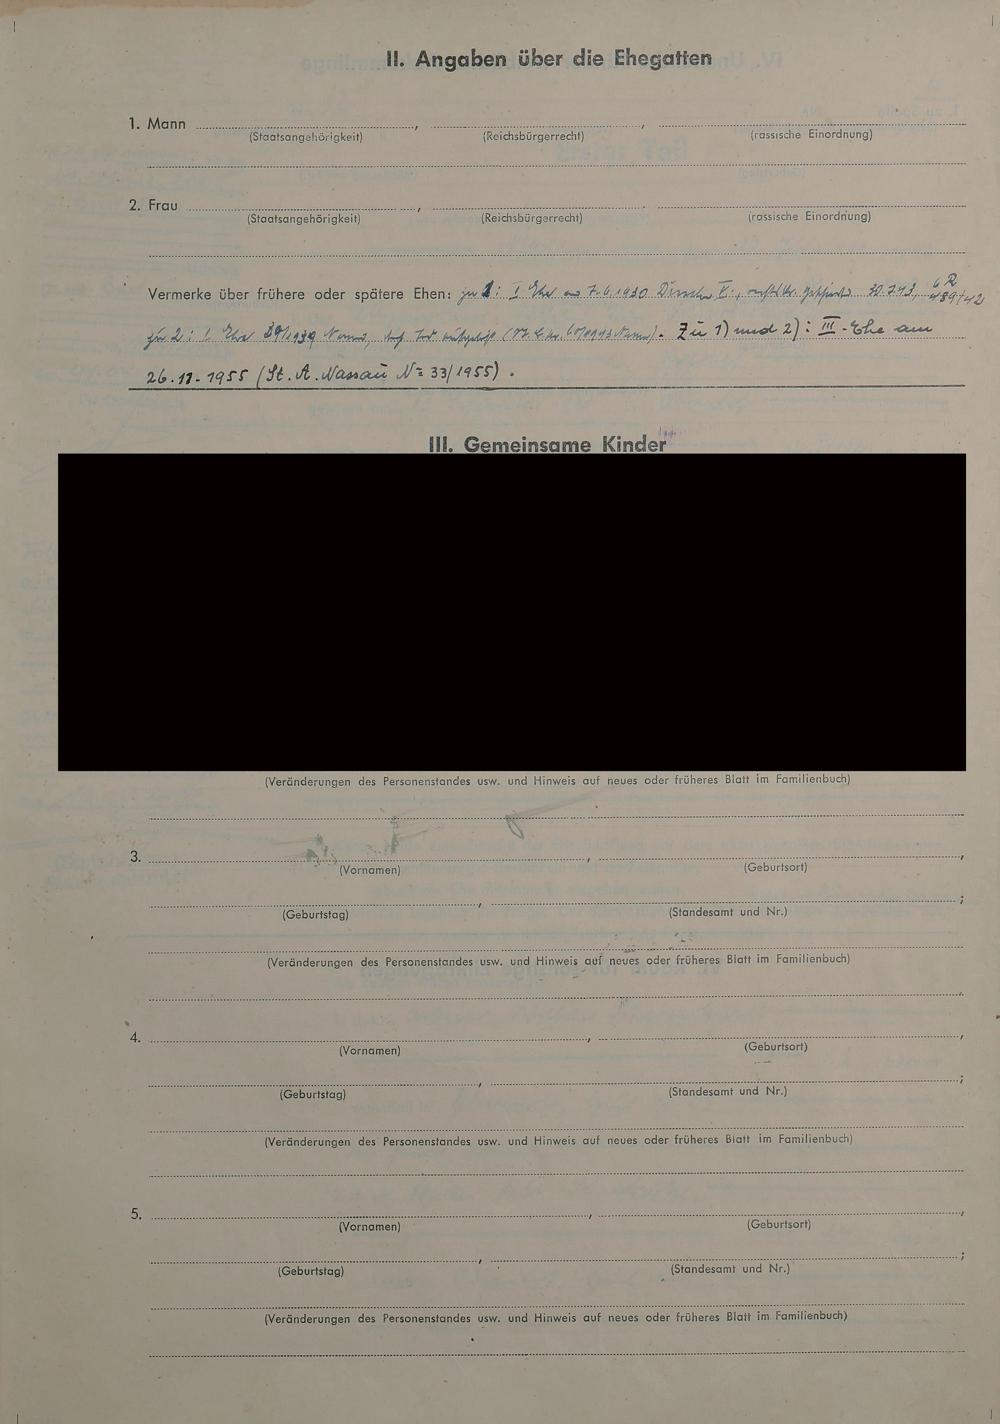 II. Angaben über die Ehegatten
1. Mann
(Staatsangehörigkeit) (Reichsbürgerrecht) (rassische Einordnung)
2. Frau
(Staatsangehörigkeit) (Reichsbürgerrecht) (rassische Einordnung)
Vermerke über frühere oder spätere Ehen: zu 1: I Ehe 7.6.1930
zu 2: 1. Ehe 39/1939. Zu 1) und 2): III-Ehe am
26.11.1955 (St. A. Nassau No 33/1955).
III. Gemeinsame Kinder
(Veränderungen des Personenstandes usw. und Hinweis auf neues oder früheres Blatt im Familienbuch)
3.
(Vornamen) (Geburtsort)
(Geburtstag) (Standesamt und Nr.)
(Veränderungen des Personenstandes usw. und Hinweis auf neues oder früheres Blatt im Familienbuch)
4.
(Vornamen) (Geburtsort)
(Geburtstag) (Standesamt und Nr.)
(Veränderungen des Personenstandes usw. und Hinweis auf neues oder früheres Blatt im Familienbuch)
5.
(Vornamen) (Geburtsort)
(Geburtstag) (Standesamt und Nr.)
(Veränderungen des Personenstandes usw. und Hinweis auf neues oder früheres Blatt im Familienbuch)